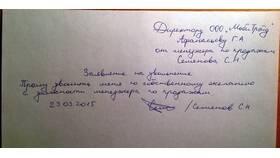 Директору ООО „МобиТрейд"
Афанасьеву Г.А.
от менеджера по продажам
Семенова С.Н
Заявление на увольнение
Прошу уволить меня по собственному желанию
с должности менеджера по продажам.
23.03.2015 /Семенов С.Н